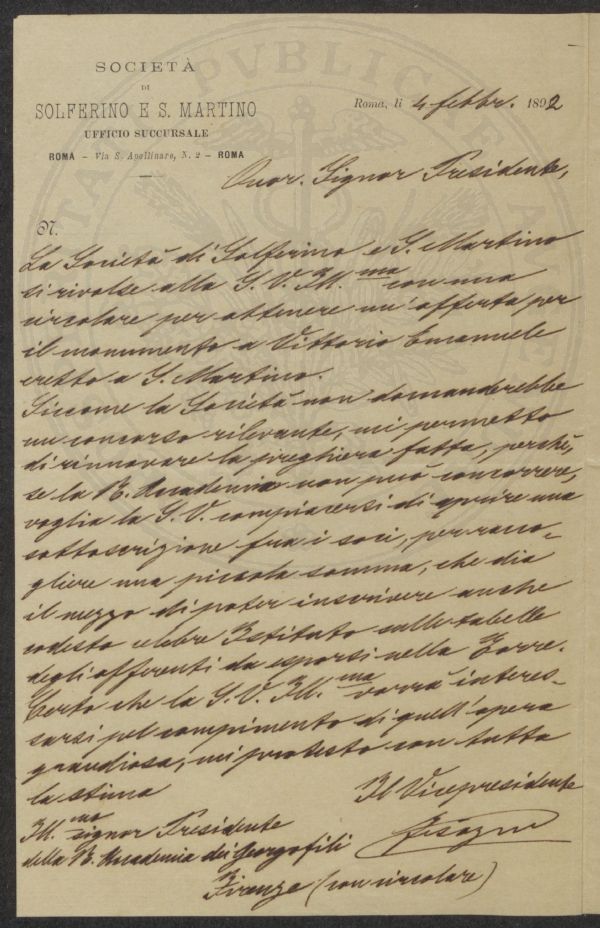 SOCIETÀ
DI
SOLFERINO E S. MARTINO
UFFICIO SUCCURSALE
ROMA - Via S. Apollinare, N. 2 - ROMA
Roma, li 4 febbr. 1892
Onor. Signor Presidente,
N.
La Società di Solferino e S. Martino
si rivolse alla S. V. Ill.ma con una
circolare per ottenere un'offerta per
il monumento a Vittorio Emanuele
eretto a S. Martino.
Siccome la Società non domanderebbe
un concorso rilevante, mi permetto
di rinnovare la preghiera fatta, perchè,
se la R. Accademia non può concorrere,
voglia la S. V. compiacersi di aprire una
sottoscrizione fra i soci, per racco-
gliere una piccola somma, che dia
il mezzo di poter inscrivere anche
codesto celebre Istituto sulle tabelle
degli offerenti da esporsi nella Torre.
Certo che la S. V. Ill.ma vorrà interes-
sarsi pel compimento di quell'opera
grandiosa, mi protesto con tutta
la stima
Il Vicepresidente
Ill.mo signor Presidente
della R. Accademia dei Georgofili
Firenze (con circolare)
PVBLICAE